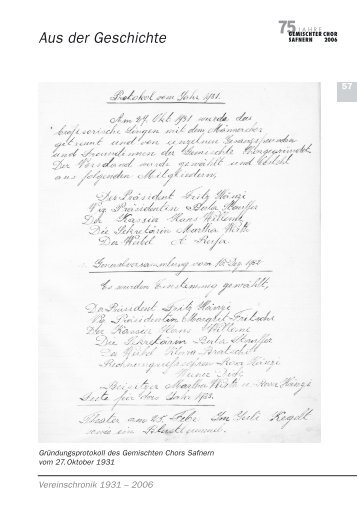 Aus der Geschichte
75 JAHRE
GEMISCHTER CHOR
SAFNERN 2006
57
Protokoll vom Jahr 1931.
Am 27. Okt 1931 wurde das
provisorische Singen mit dem Männerchor
getrennt und von unseren Gesangsfreunden
und Freundinnen der Gemischte Chor gegründet
Der Vorstand wurde gewählt und besteht
aus folgenden Mitgliedern,
Der Präsident Fritz Hänzi
Vize Präsidentin Berta Stauffer
Der Kassier Hans Willemi
Die Sekretärin Martha
Der Weibel A
Generalversammlung vom 10. Dez. 1932
Es wurden Einstimmig gewählt,
Der Präsident Fritz Hänzi
Vize Präsidentin Margrit
Der Kassier Hans Willemi
Die Sekretärin Berta Stauffer
Der Weibel Klara
Rosa Hänzi
Beisitzer Martha u. Rosa Hänzi
Liste für das Jahr 1933.
Theater am 25. Febr. Im
sowie ein
Gründungsprotokoll des Gemischten Chors Safnern
vom 27. Oktober 1931
Vereinschronik 1931 – 2006